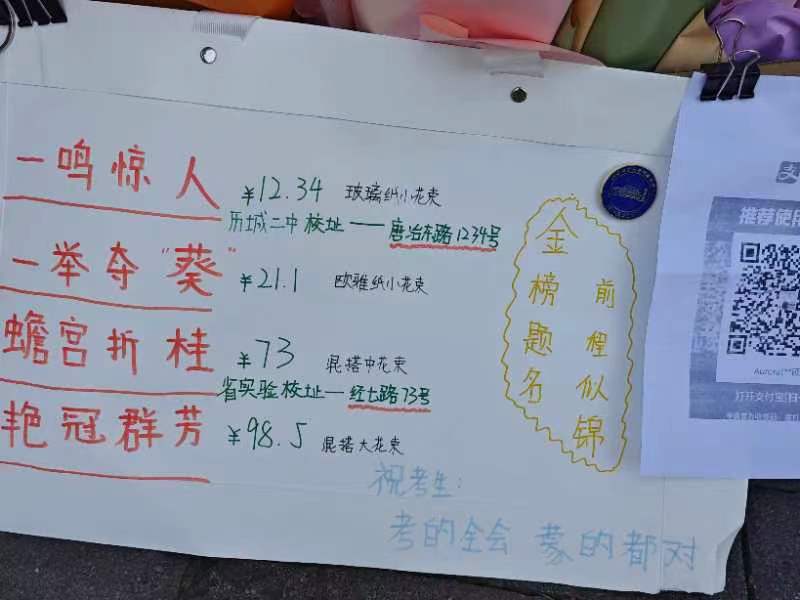 一鸣惊人 ¥12.34 玻璃纸小花束
历城二中校址——唐冶东路1234号
一举夺"葵" ¥21.1 欧雅纸小花束
蟾宫折桂 ¥73 混搭中花束
省实验校址——经七路73号
艳冠群芳 ¥98.5 混搭大花束
金榜题名
前程似锦
祝考生:
考的全会 蒙的都对
支
推荐使用
打开支付宝[扫一